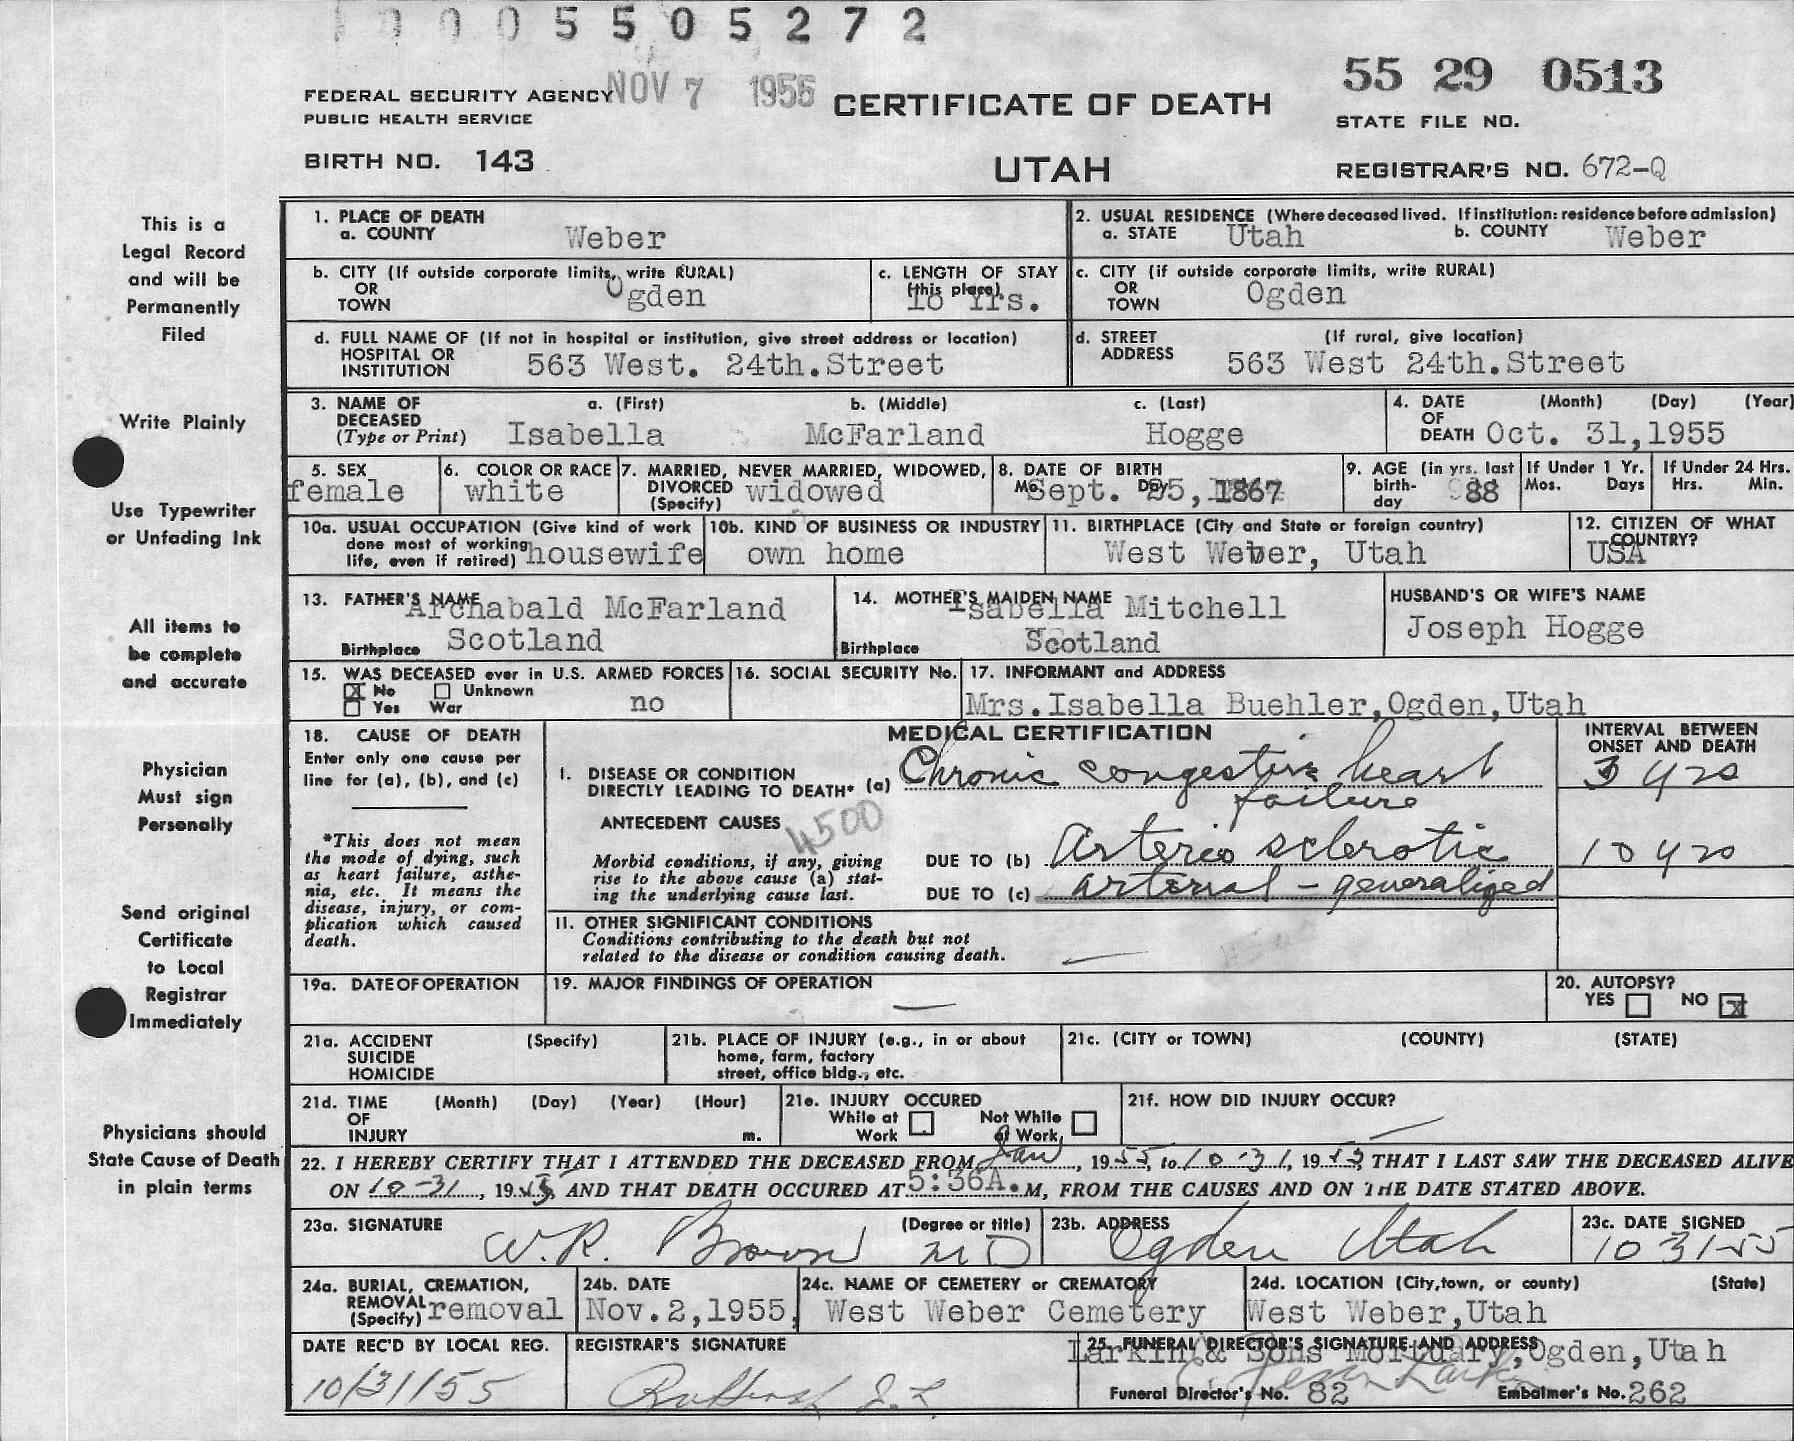 0005505272
FEDERAL SECURITY AGENCY NOV 7 1955 CERTIFICATE OF DEATH 55 29 0513
PUBLIC HEALTH SERVICE STATE FILE NO.
BIRTH NO. 143 UTAH REGISTRAR'S NO. 672-Q
This is a
Legal Record
and will be
Permanently
Filed
Write Plainly
Use Typewriter
or Unfading Ink
All items to
be complete
and accurate
Physician
Must sign
Personally
Send original
Certificate
to Local
Registrar
Immediately
Physicians should
State Cause of Death
in plain terms
1. PLACE OF DEATH
a. COUNTY Weber
2. USUAL RESIDENCE (Where deceased lived. If institution: residence before admission)
a. STATE Utah b. COUNTY Weber
b. CITY (If outside corporate limits, write RURAL)
OR
TOWN Ogden
c. LENGTH OF STAY
(this place)
Yrs.
c. CITY (if outside corporate limits, write RURAL)
OR
TOWN Ogden
d. FULL NAME OF (If not in hospital or institution, give street address or location)
HOSPITAL OR
INSTITUTION 563 West. 24th.Street
d. STREET (If rural, give location)
ADDRESS 563 West 24th.Street
3. NAME OF a. (First) b. (Middle) c. (Last)
DECEASED
(Type or Print) Isabella McFarland Hogge
4. DATE (Month) (Day) (Year)
OF
DEATH Oct. 31,1955
5. SEX
female
6. COLOR OR RACE
white
7. MARRIED, NEVER MARRIED, WIDOWED,
DIVORCED widowed
(Specify)
8. DATE OF BIRTH
Mo. Day
Sept. 25, 1867
9. AGE (in yrs. last
birth-
day 88
If Under 1 Yr.
Mos. Days
If Under 24 Hrs.
Hrs. Min.
10a. USUAL OCCUPATION (Give kind of work
done most of working
life, even if retired) housewife
10b. KIND OF BUSINESS OR INDUSTRY
own home
11. BIRTHPLACE (City and State or foreign country)
West Weber, Utah
12. CITIZEN OF WHAT
COUNTRY?
USA
13. FATHER'S NAME
Archabald McFarland
Birthplace Scotland
14. MOTHER'S MAIDEN NAME
Isabella Mitchell
Birthplace Scotland
HUSBAND'S OR WIFE'S NAME
Joseph Hogge
15. WAS DECEASED ever in U.S. ARMED FORCES
X No Unknown
Yes War no
16. SOCIAL SECURITY No.
17. INFORMANT and ADDRESS
Mrs.Isabella Buehler,Ogden,Utah
18. CAUSE OF DEATH
Enter only one cause per
line for (a), (b), and (c)
*This does not mean
the mode of dying, such
as heart failure, asthe-
nia, etc. It means the
disease, injury, or com-
plication which caused
death.
MEDICAL CERTIFICATION
INTERVAL BETWEEN
ONSET AND DEATH
I. DISEASE OR CONDITION
DIRECTLY LEADING TO DEATH* (a) Chronic congestive heart 3 yrs
failure
ANTECEDENT CAUSES 4500
Morbid conditions, if any, giving
rise to the above cause (a) stat-
ing the underlying cause last.
DUE TO (b) Arterio sclerotic 10 yrs
DUE TO (c) arterial - generalized
II. OTHER SIGNIFICANT CONDITIONS
Conditions contributing to the death but not
related to the disease or condition causing death. —
19a. DATE OF OPERATION
19. MAJOR FINDINGS OF OPERATION
—
20. AUTOPSY?
YES NO X
21a. ACCIDENT (Specify)
SUICIDE
HOMICIDE
21b. PLACE OF INJURY (e.g., in or about
home, farm, factory
street, office bldg., etc.
21c. (CITY or TOWN) (COUNTY) (STATE)
21d. TIME (Month) (Day) (Year) (Hour)
OF
INJURY m.
21e. INJURY OCCURED
While at Not While
Work at Work
21f. HOW DID INJURY OCCUR?
—
22. I HEREBY CERTIFY THAT I ATTENDED THE DECEASED FROM Jan, 1955, to 10-31, 1955, THAT I LAST SAW THE DECEASED ALIVE
ON 10-31, 1955, AND THAT DEATH OCCURED AT 5:36A.M, FROM THE CAUSES AND ON THE DATE STATED ABOVE.
23a. SIGNATURE (Degree or title)
W.R. Brown MD
23b. ADDRESS
Ogden Utah
23c. DATE SIGNED
10 31-55
24a. BURIAL, CREMATION,
REMOVAL
(Specify) removal
24b. DATE
Nov.2,1955,
24c. NAME OF CEMETERY or CREMATORY
West Weber Cemetery
24d. LOCATION (City,town, or county) (State)
West Weber,Utah
DATE REC'D BY LOCAL REG.
10/31/55
REGISTRAR'S SIGNATURE
25. FUNERAL DIRECTOR'S SIGNATURE AND ADDRESS
Larkin & Sons Mortuary,Ogden,Utah
Funeral Director's No. 82 Embalmer's No. 262